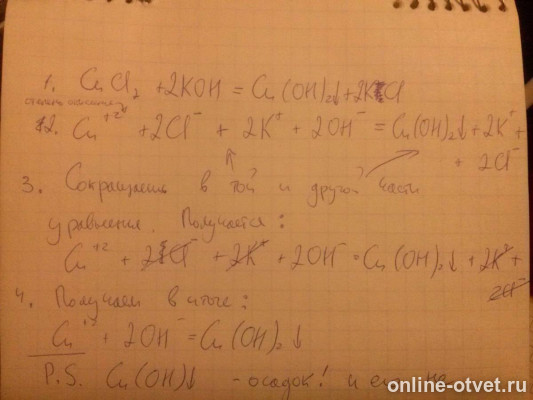 1. CuCl₂ + 2KOH = Cu(OH)₂↓ + 2KCl
2. Cu⁺² + 2Cl⁻ + 2K⁺ + 2OH⁻ = Cu(OH)₂↓ + 2K⁺ +
+ 2Cl⁻
3. Сокращаешь в той и другой части
уравнения. Получается:
Cu⁺² + 2Cl⁻ + 2K⁺ + 2OH⁻ = Cu(OH)₂↓ + 2K⁺ +
2Cl⁻
4. Получаем в итоге:
Cu⁺² + 2OH⁻ = Cu(OH)₂↓
P.S. Cu(OH)↓ - осадок! и
online-otvet.ru